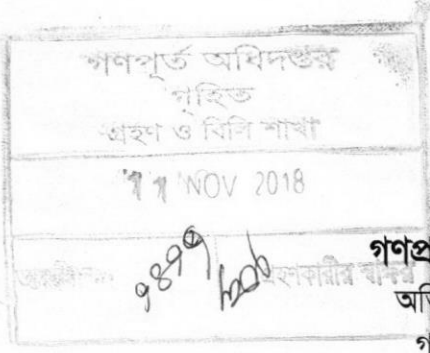 গণপূর্ত অধিদপ্তর
গৃহিত
গ্রহণ ও বিলি শাখা
11 NOV 2018
গণপ্র
গ্রহণকারীর স্বাক্ষর
অধি
গ